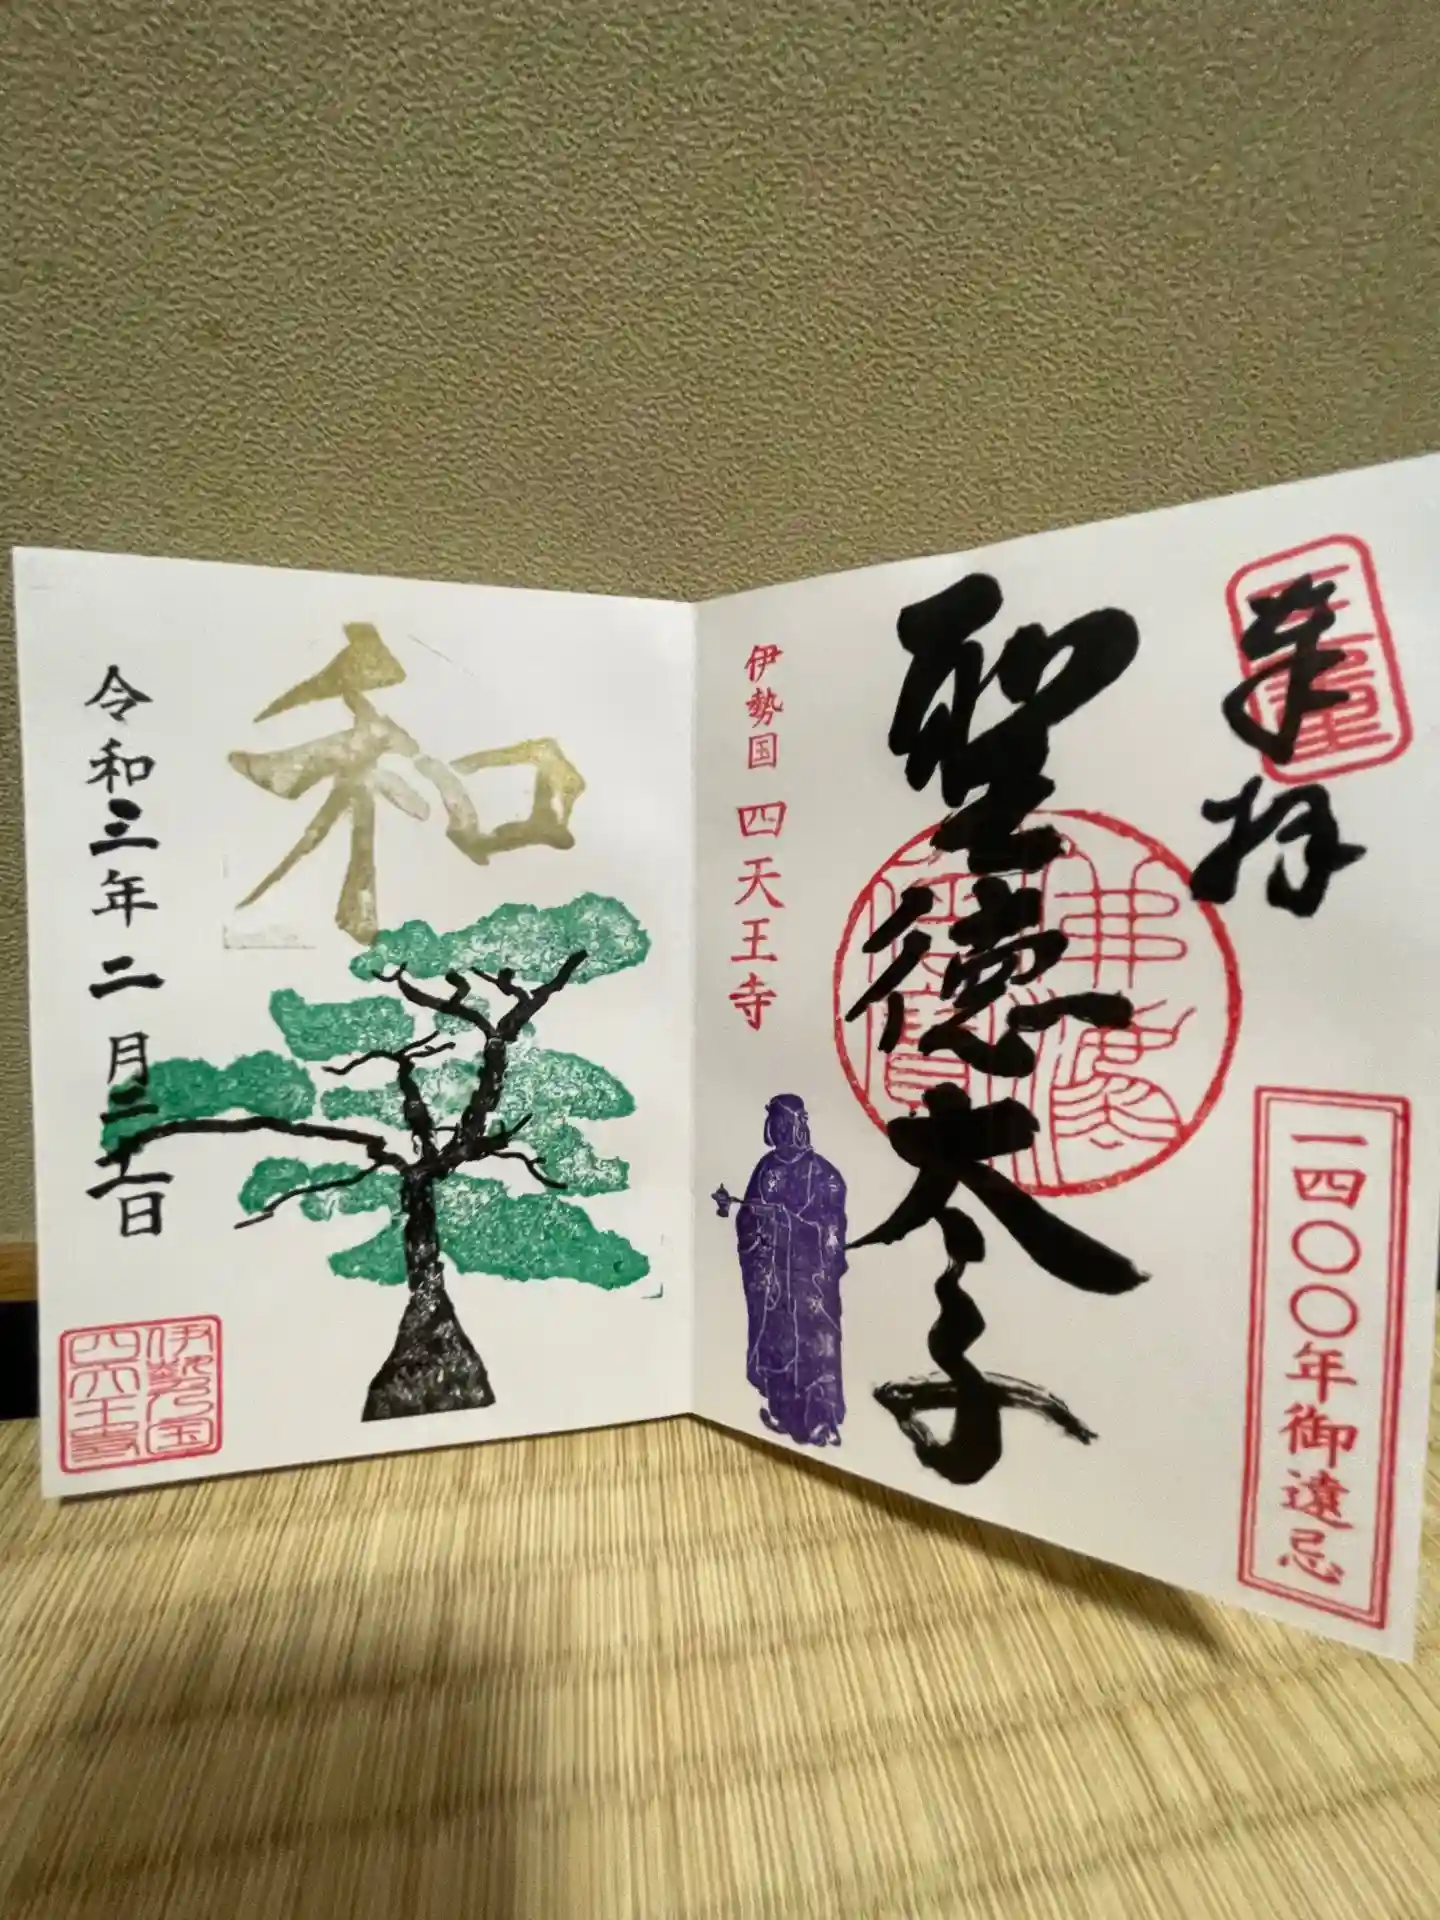 奉拝
一四〇〇年御遠忌
聖徳太子
伊勢国 四天王寺
和
令和三年二月二十二日
伊勢国
四天王寺